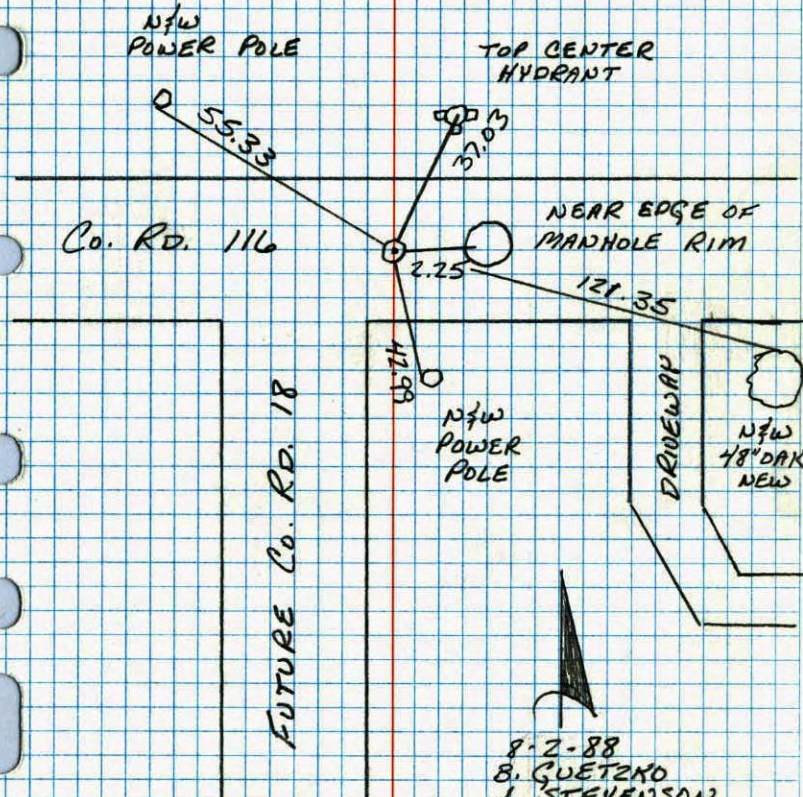 N&W
POWER POLE
TOP CENTER
HYDRANT
55.33
37.03
Co. RD. 116
NEAR EDGE OF
MANHOLE RIM
2.25
121.35
42.98
N&W
POWER
POLE
DRIVEWAY
N&W
48" OAK
NEW
FUTURE Co. RD. 18
8-2-88
B. GUETZKO
STEVENSON